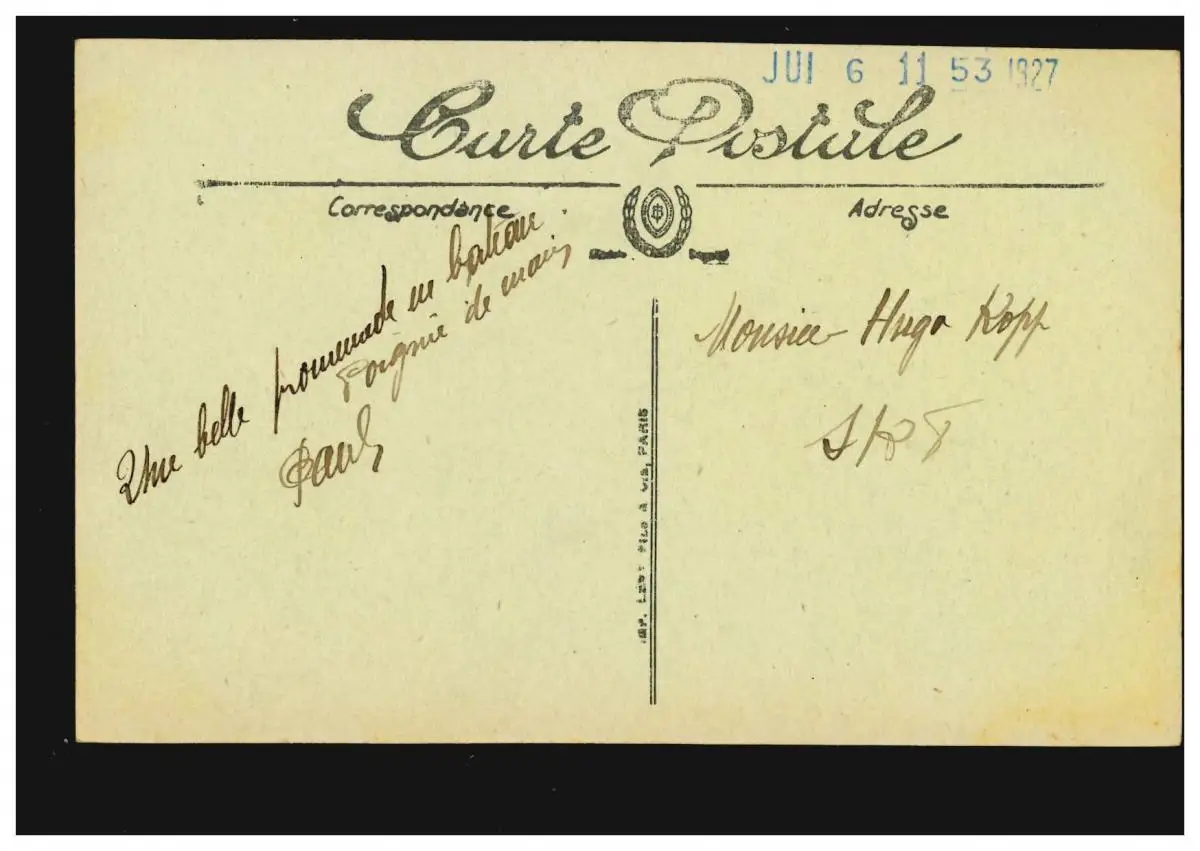 JUI 6 11 53 1927
Carte Postale
Correspondance
Adresse
Une belle promenade en bateau
Poignée de mains
Monsieur Hugo Kopp
IMP. LEVY FILS & Cie, PARIS